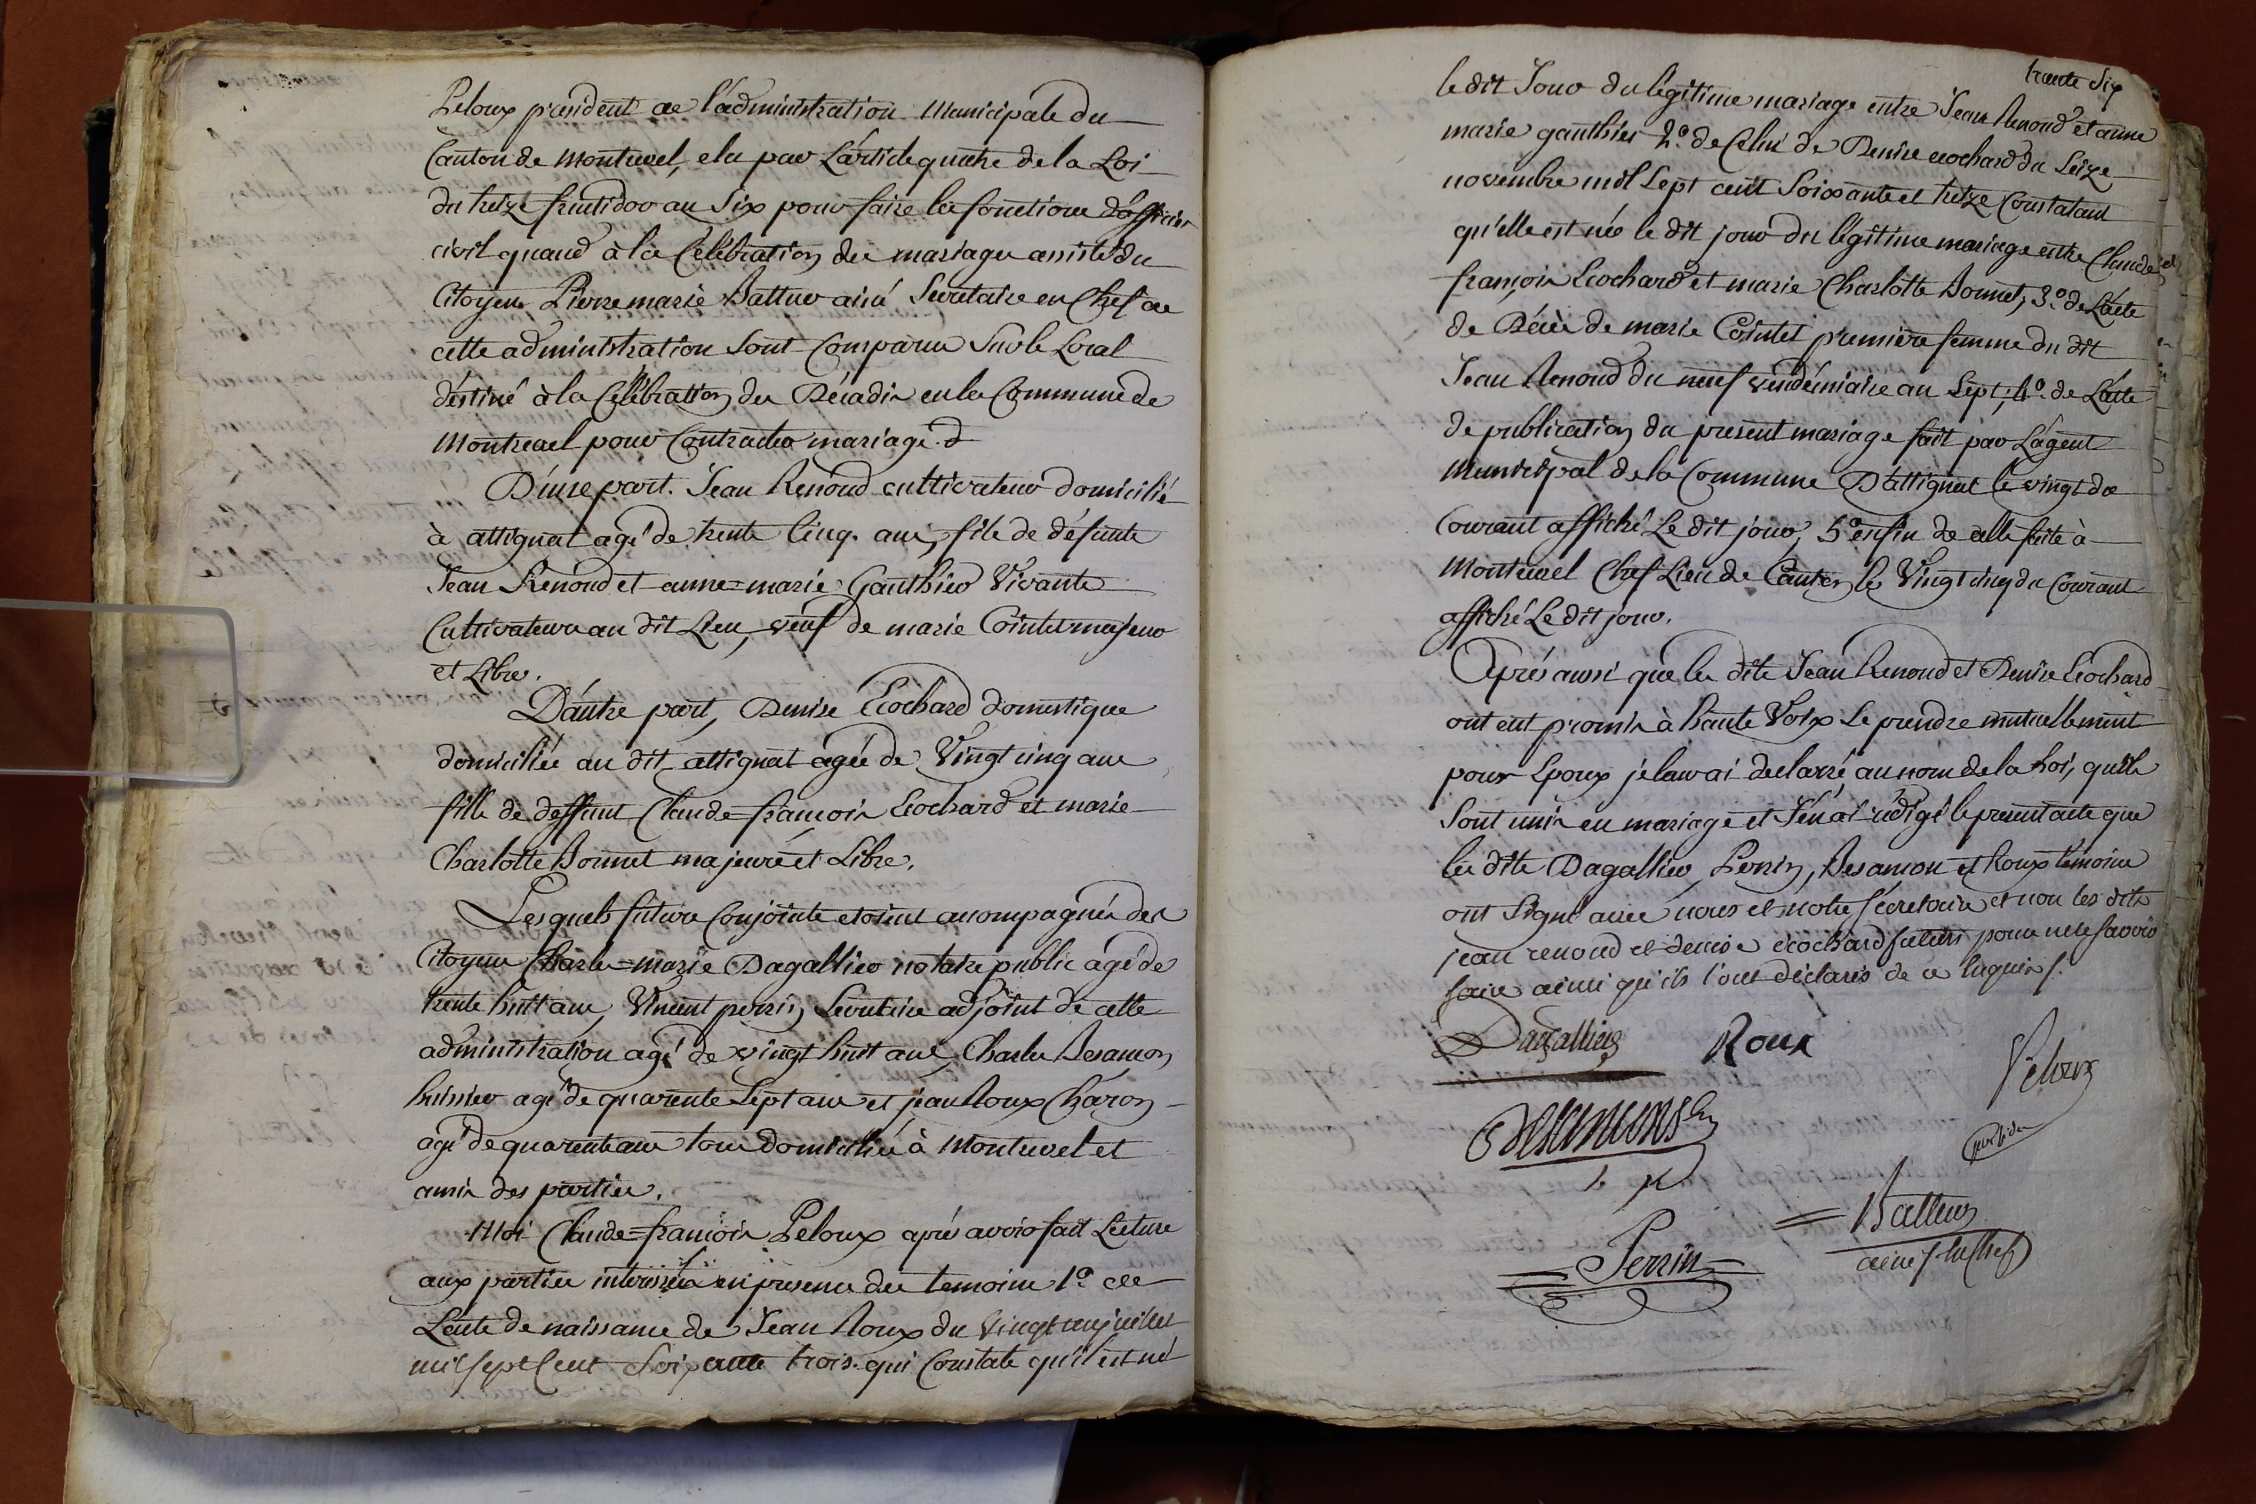 Peloux president de l'administration Municipale du
Canton de Montrevel, elu par L'article quatre de la Loi
du treize fructidor an Six pour faire les fonctions d'officier
civil quand à la Célébration des mariages assisté du
Citoyen Pierre marie Battur ainé Secretaire en Chef de
cette administration Sont Comparus Sur le Local
déstiné à la Célébration des Décadis en la Commune de
Montrevel pour Contracter mariage.
D'une part. Jean Renoud cultivateur domicilié
à attignat agé de trente Cinq ans, fils de défunts
Jean Renoud et anne=marie Gauthier Vivante
Cultivateurs au dit Lieu, veuf de marie Cointet majeur
et Libre.
D'autre part, Denise Ecochard domestique
domiciliée au dit attignat agée de Vingt cinq ans
fille de deffunt Claude=françois Ecochard et marie
Charlotte Bonnet majeure et Libre.
Lesquels futurs Conjoints etoient accompagnés des
Citoyens Charles=marie Dagallier notaire public agé de
trente huit ans, Vincent perrin Secretaire adjoint de cette
administration agé de vingt huit ans, Charles Desamon
huissier agé de quarente Sept ans et jean Roux Charon
agé de quarente ans tous domiciliés à Montrevel et
amis des parties.
Moi Claude=françois Peloux après avoir fait Lecture
aux parties interessées en presence des temoins 1.º de
L'acte de naissance de Jean Roux du Vingt juillet
mil sept Cent Soixante trois. qui Constate qu'il est né
trente Six
le dit Jour du légitime mariage entre Jean Renoud et anne
marie gauthier 2.º de Celui de Denise ecochard du Seize
novembre mil Sept cent Soixante et treize Constatant
qu'elle est née le dit jour du légitime mariage entre Claude
françois Ecochard et marie Charlotte Bonnet, 3.º de L'acte
de Décès de marie Cointet première femme du dit
Jean Renoud du neuf vendémiaire an Sept, 4.º de L'acte
de publication du present mariage fait par L'agent
Municipal de la Commune D'attignat le vingt du
Courant affiché Le dit jour, 5º enfin de celle faite à
Montrevel Chef Lieu de Canton le Vingt cinq du Courant
affiché Le dit jour.
Après aussi que les dits Jean Renoud et Denise Ecochard
ont eut promis à haute Voix Se prendre mutuellement
pour Epoux je leur ai declaré au nom de la Loi, quils
Sont unis en mariage et J'én ai rédigé le present acte que
les dits Dagallier, Perrin, Desamon et Roux témoins
ont Signé avec nous et notre Sécretaire et non les dits
jean renoud et denise ecochard futurs pour ne le savoir
faire ainsi qu'ils l'ont déclarés de ce
Dagallier
Roux
Peloux
president
Desamons
Battur
ainé
Perrin